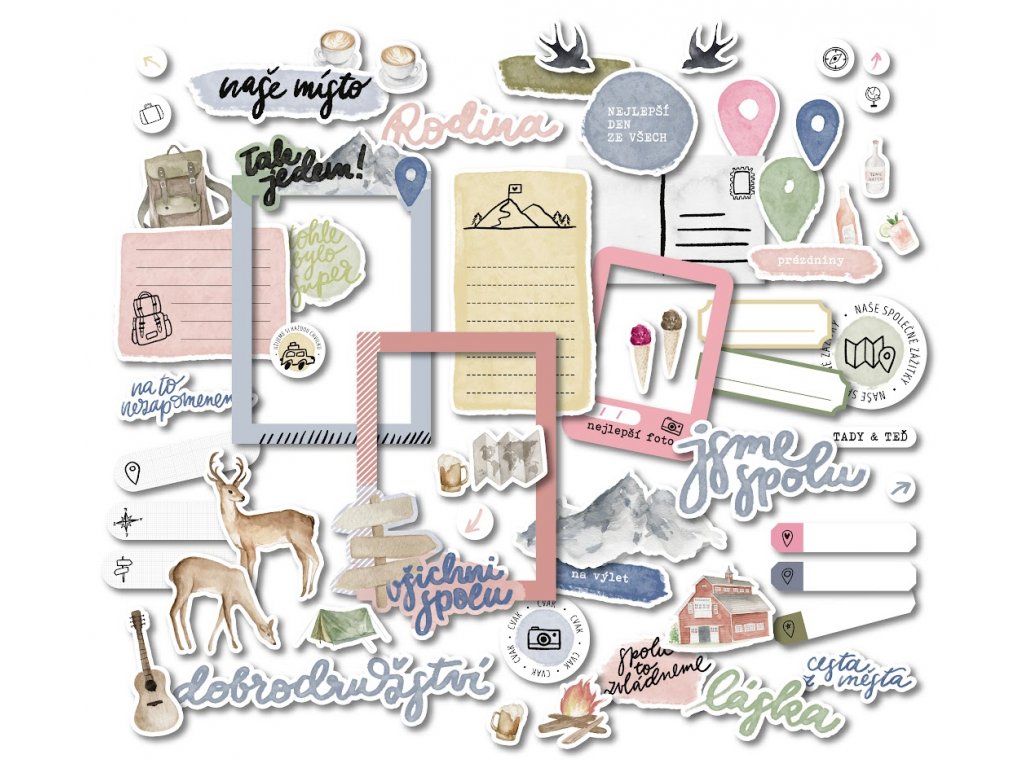 naše místo
Rodina
NEJLEPŠÍ
DEN
ZE VŠECH
Tak
jedem!
tohle
bylo
super
prázdniny
NAŠE SPOLEČNÉ ZÁŽITKY
na to
nezapomenem
nejlepší foto
TADY & TEĎ
jsme
spolu
všichni
spolu
na výlet
CVAK • CVAK • CVAK • CVAK • CVAK • CVAK
spolu
to
zvládneme
cesta
z města
dobrodružství
láska